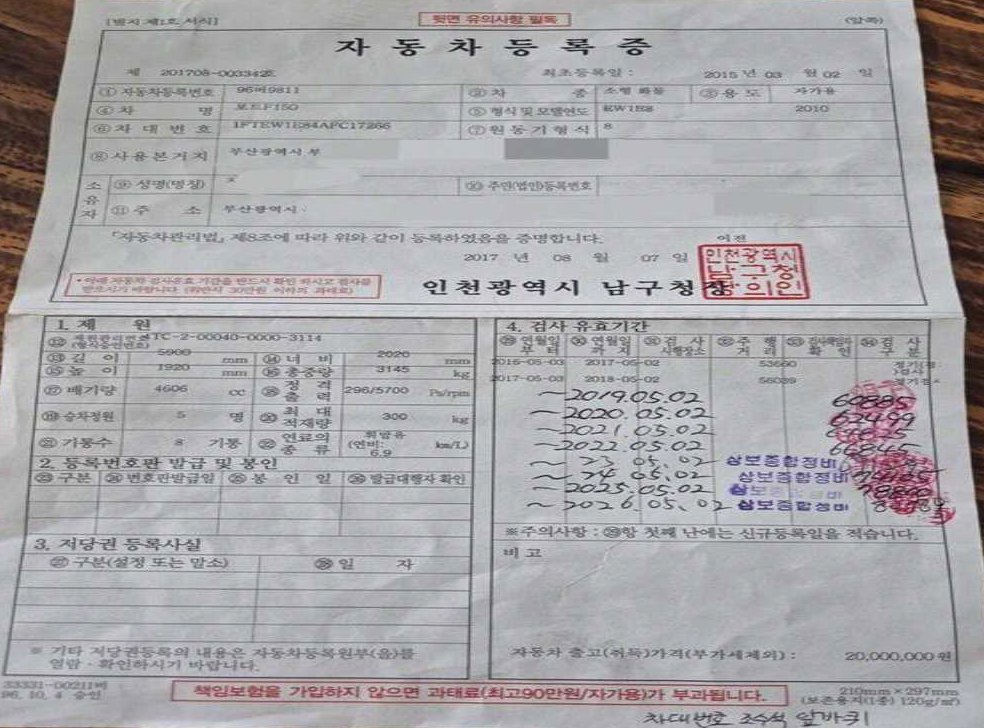 [별지 제1호 서식]
뒷면 유의사항 필독
(앞쪽)
자동차등록증
제 201708-003342호 최초등록일 : 2015 년 03 월 02 일
① 자동차등록번호 96버9811 ② 차 종 소형 화물 ③ 용 도 자가용
④ 차 명 포드F150 ⑤ 형식 및 모델연도 EW1E8 2010
⑥ 차 대 번 호 1FTEW1E84AFC17266 ⑦ 원 동 기 형 식 8
⑧ 사 용 본 거 지 부산광역시 부
소유자 ⑨ 성명(명칭) ⑩ 주민(법인)등록번호
⑪ 주 소 부산광역시
「자동차관리법」 제8조에 따라 위와 같이 등록하였음을 증명합니다. 이전
2017 년 08 월 07 일
• 아래 자동차 검사유효 기간을 반드시 확인 하시고 검사를
받으시기 바랍니다. (위반시 30만원 이하의 과태료)
인천광역시 남구청장
인천광역시
남구청
장의인
1. 제 원
⑫ 제원관리번호 (형식승인번호) TC-2-00040-0000-3114
⑬ 길 이 5900 mm ⑭ 너 비 2020 mm
⑮ 높 이 1920 mm ⑯ 총중량 3145 kg
⑰ 배기량 4606 cc ⑱ 정격출력 296/5700 Ps/rpm
⑲ 승차정원 5 명 ⑳ 최대적재량 300 kg
㉑ 기통수 8 기통 ㉒ 연료의 종류 휘발유 (연비: 6.9 km/L)
2. 등록번호판 발급 및 봉인
㉓ 구분 ㉔ 번호판발급일 ㉕ 봉 인 일 ㉖ 발급대행자 확인
3. 저당권 등록사실
㉗ 구분(설정 또는 말소) ㉘ 일 자
※ 기타 저당권등록의 내용은 자동차등록원부(을)를
열람 · 확인하시기 바랍니다.
4. 검사 유효기간
㉙ 연월일부터 ㉚ 연월일까지 ㉛ 검사시행장소 ㉜ 주행거리 ㉝ 검사책임자확인 ㉞ 검사구분
2016-05-03 2017-05-02 53660
2017-05-03 2018-05-02 56039
~2019.05.02 60885
~2020.05.02 62499
~2021.05.02
~2022.05.02 66845
~ 23. 05. 02 상보종합정비
~ 24. 05. 02 상보종합정비
~2025.05.02 상보종합정비
~2026.05.02 상보종합정비
※주의사항 : ㉙항 첫째 난에는 신규등록일을 적습니다.
비 고
자동차 출고(취득)가격(부가세제외) : 20,000,000 원
33331-00211비
96. 10. 4 승인
책임보험을 가입하지 않으면 과태료(최고90만원/자가용)가 부과됩니다.
210mm×297mm
(보존용지(1종) 120g/㎡)
차대번호 조수석 앞바퀴